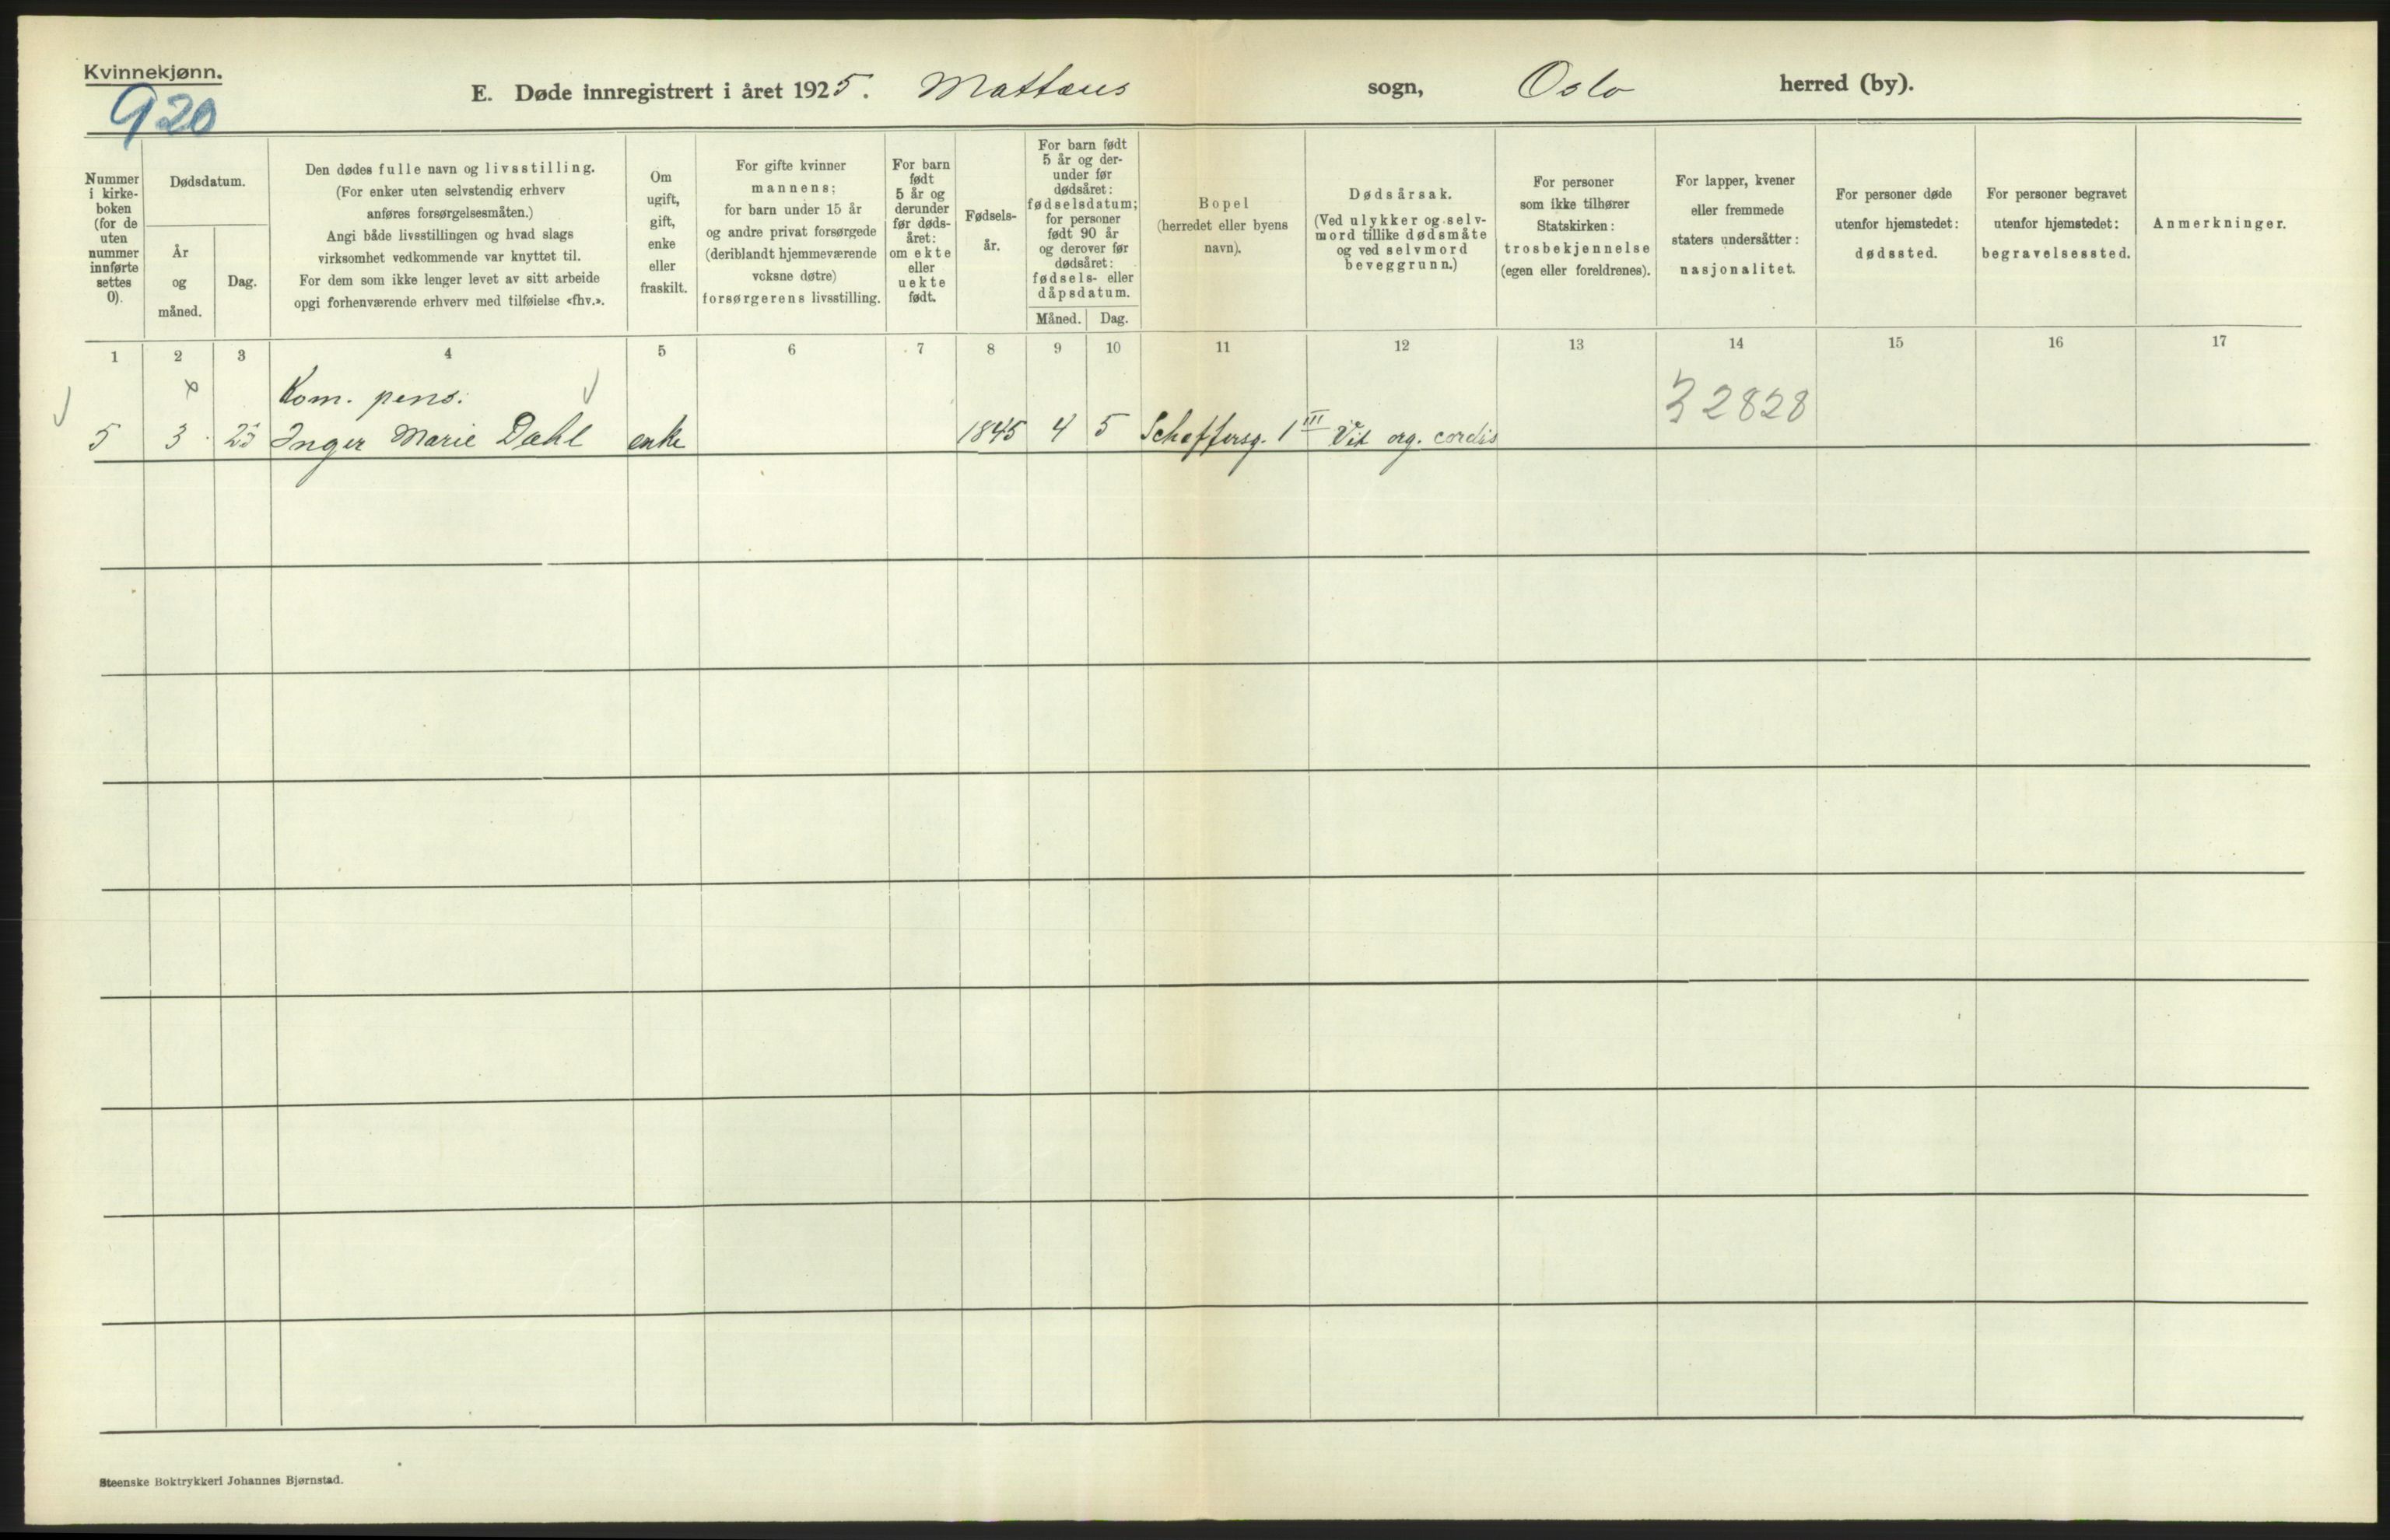 Kvinnekjønn.
920
E. Døde innregistrert i året 1925. Mattæus sogn, Oslo herred (by).
Nummer
i kirke-
boken
(for de
uten
nummer
innførte
settes
0).
Dødsdatum.
År
og
måned.
Dag.
Den dødes fulle navn og livsstilling.
(For enker uten selvstendig erhverv
anføres forsørgelsesmåten.)
Angi både livsstillingen og hvad slags
virksomhet vedkommende var knyttet til.
For dem som ikke lenger levet av sitt arbeide
opgi forhenværende erhverv med tilføielse «fhv.».
Om
ugift,
gift,
enke
eller
fraskilt.
For gifte kvinner
mannens;
for barn under 15 år
og andre privat forsørgede
(deriblandt hjemmeværende
voksne døtre)
forsørgerens livsstilling.
For barn
født
5 år og
derunder
før døds-
året:
om ekte
eller
uekte
født.
Fødsels-
år.
For barn født
5 år og der-
under før
dødsåret:
fødselsdatum;
for personer
født 90 år
og derover før
dødsåret:
fødsels- eller
dåpsdatum.
Måned. Dag.
Bopel
(herredet eller byens
navn).
Dødsårsak.
(Ved ulykker og selv-
mord tillike dødsmåte
og ved selvmord
beveggrunn.)
For personer
som ikke tilhører
Statskirken:
trosbekjennelse
(egen eller foreldrenes).
For lapper, kvener
eller fremmede
staters undersåtter:
nasjonalitet.
For personer døde
utenfor hjemstedet:
dødssted.
For personer begravet
utenfor hjemstedet:
begravelsessted.
Anmerkninger.
1 2 3 4 5 6 7 8 9 10 11 12 13 14 15 16 17
Kom. pens.
32828
5 3 Inger Marie Dahl enke 1845 4 5 Scheffersg. 1 III Vit org. cordis
Steenske Boktrykkeri Johannes Bjørnstad.